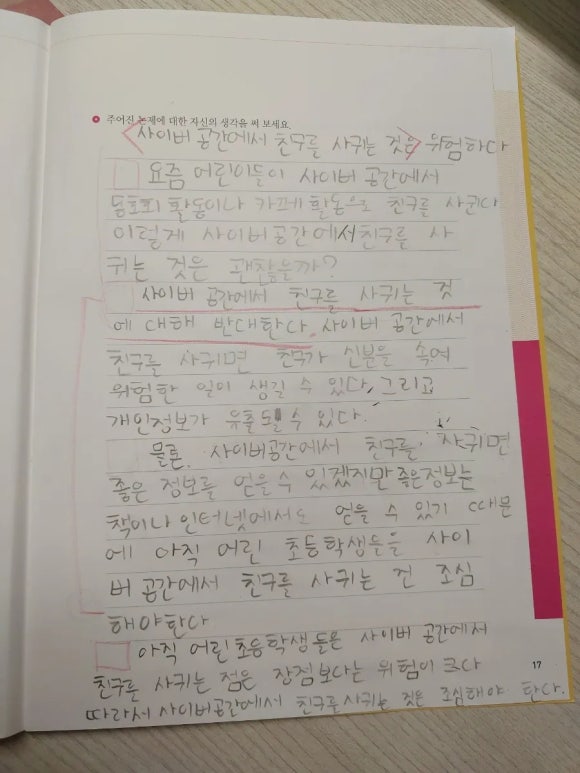 주어진 논제에 대한 자신의 생각을 써 보세요.
<사이버 공간에서 친구를 사귀는 것은> 위험하다
요즘 어린이들이 사이버 공간에서
동호회 활동이나 카페 활동으로 친구를 사귄다
이렇게 사이버 공간에서 친구를 사
귀는 것은 괜찮을까?
사이버 공간에서 친구를 사귀는 것
에 대해 반대한다. 사이버 공간에서
친구를 사귀면 친구가 신분을 속여
위험한 일이 생길 수 있다. 그리고
개인정보가 유출될 수 있다.
물론 사이버공간에서 친구를 사귀면
좋은 정보를 얻을 수 있겠지만 좋은정보는
책이나 인터넷에서도 얻을 수 있기 때문
에 아직 어린 초등학생들을 사이
버 공간에서 친구를 사귀는 건 조심
해야한다
아직 어린초등학생들은 사이버 공간에서
친구를 사귀는 점은 장점보다는 위험이 크다
따라서 사이버공간에서 친구를 사귀는 것은 조심해야 한다.
17